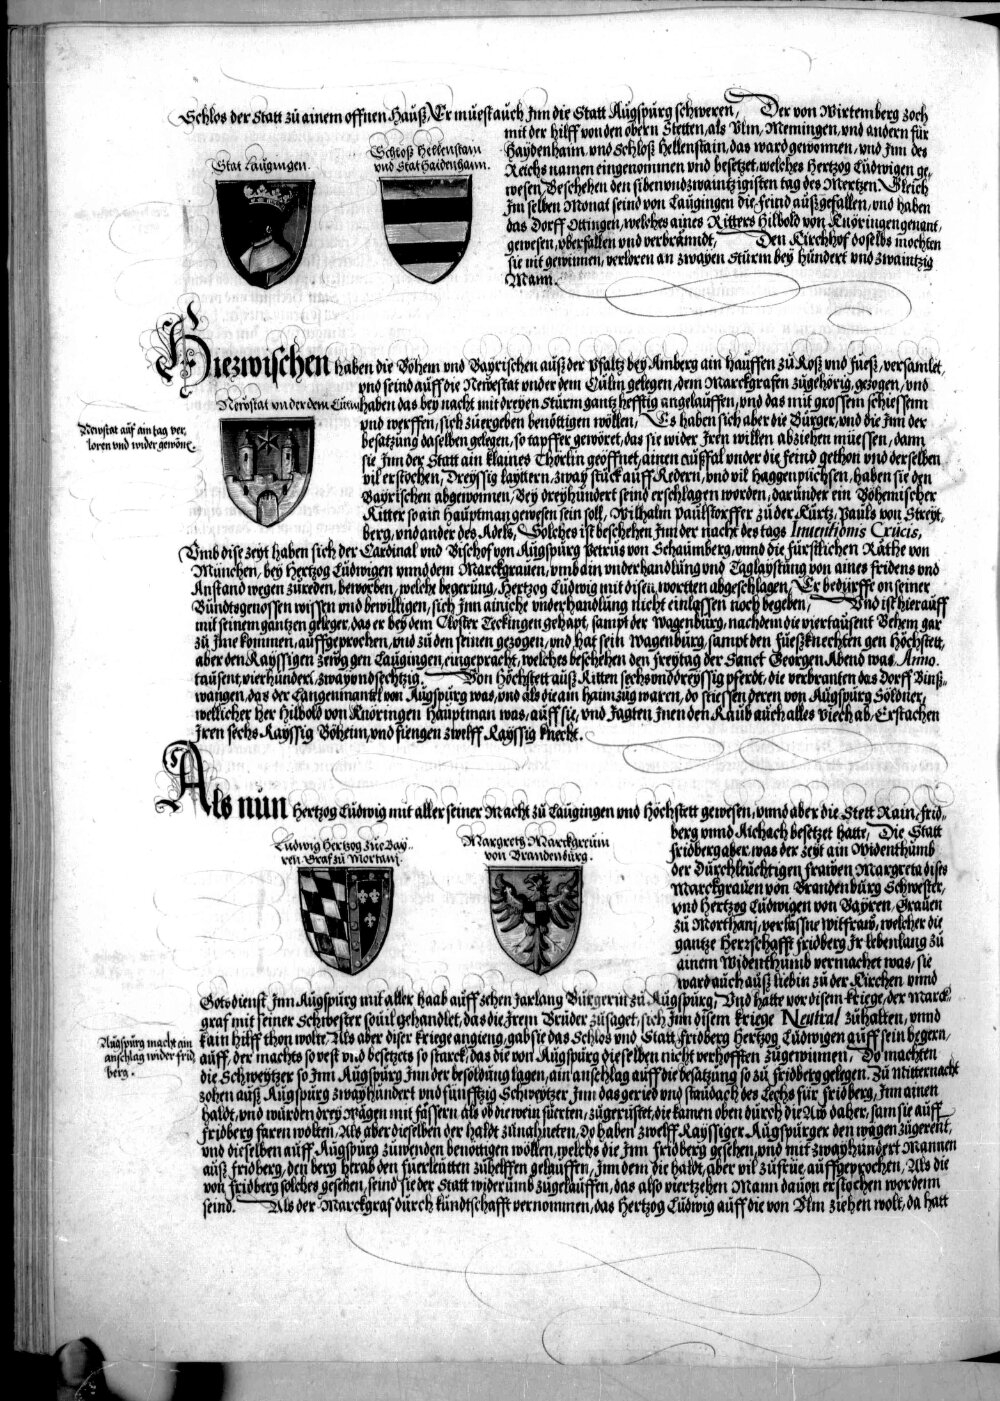 Schlos der Statt zů ainem offnen Hauß, Er můest auch Jnn die Statt Augspurg schweren, Der von Wirtemberg zoch
mit der hilff von den obern Stetten, als Vlm, Memingen, vnd andern für
Haydenhaim, vnd Schloß Hellenstain, das ward gewonnen, vnd Jnn des
Reichs namen eingenommen vnd besetzet, welches Hertzog Ludwigen ge„
wesen, Beschehen den sibenvndzwaintzigisten tag des Mertzen. Gleich
Jm selben Monat seind von Laugingen die feind außgefallen, vnd haben
das Dorff Ottingen, welches aines Ritters Hilbold von Knöringen genant,
gewesen, vberfallen vnd verbranndt, Den Kirchhof doselbs mochten
sie nit gewinnen, verloren an zwayen Sturm bey hundert vnd zwaintzig
Mann.
Stat Laugingen.
Schloß Hellenstain
vnd Stat Haidenhaim.
Hiezwischen haben die Böhem vnd Bayrischen auß der Pfaltz bey Amberg ain hauffen zů Roß vnd Fieß, versamlet,
vnd seind auff die Newestat vnder dem Culm gelegen, dem Marckgrafen zugehörig, gezogen, vnd
haben das bey nacht mit dreyen Sturm gantz hefftig angelauffen, vnd das mit grossem schiessenn
vnd werffen, sich zuergeben benöttigen wöllen, Es haben sich aber die Burger, vnd die Jnn der
besatzung daselben gelegen, so tapffer gewöret, das sie wider Jren willen abziehen müessen, dann
sie Jnn der Statt ain klaines Thörlin geöffnet, ainen außfal vnder die feind gethon vnd derselben
vil erstochen, Dreyssig layttern, zway stuck auff Redern, vnd vil haggenpüchsen, haben sie den
Bayrischen abgewonnen, Bey dreyhundert seind erschlagen worden, darunder ein Böhemischer
Ritter so ain Hauptman gewesen sein soll, Wilhalm Paulstorffer zu der Kürtz, Pauls von Streyt„
berg, vnd ander des Adels, Solches ist beschehen Jnn der nacht des tags Inuentionis Crucis,
Newstat vnder dem Culm
Newstat auf ain tag ver„
loren vnd wider gewöñe.
Vmb dise zeyt haben sich der Cardinal vnd Bischof von Augspurg Petrus von Schaumberg, vnnd die fürstlichen Räthe von
München, bey Hertzog Ludwigen vnnd dem Marckgrauen, vmb ain vnderhandlung vnd Taglaystung von aines fridens vnd
Anstand wegen zureden, beworben, welche begerung, Hertzog Ludwig mit disen wortten abgeschlagen, Er bedürffe on seiner
Bundtsgenossen wissen vnd bewilligen, sich Jnn ainiche vnderhandlung nicht einlassen noch begeben, Vnd ist hierauff
mit seinem gantzen geleger, das er bey dem Closter Teckingen gehapt, sampt der Wagenburg, nachdem die viertausent Behem gar
zu Jme kommen, auffgeprochen, vnd zu den seinen gezogen, vnd hat sein Wagenburg, sampt den Füeßknechten gen Höchstett,
aber den Rayssigen zeug gen Laugingen, eingepracht, welches beschehen den Freytag der Sanct Georgen Abend was, Anno.
tausent, vierhundert, zwayvndsechtzig. Von Höchstett auß Ritten sechsvnddreyssig pferdt, die verbranten das Dorff Binß„
wangen, das der Langenmantel von Augspurg was, vnd als die ain haimzug waren, do stiessen deren von Augspurg Söldner,
wellicher Her Hilbold von Knöringen Hauptman was, auff sie, vnd Jagten Jnen den Raub auch alles viech ab, Erstachen
Jren sechs Rayssig Böheim, vnd fiengen zwelff Rayssig knecht.
Als nun Hertzog Ludwig mit aller seiner Macht zu Laugingen vnd Höchstett gewesen, vnnd aber die Stett Rain, Frid„
berg vnnd Aichach besetzet hatte, Die Statt
Fridberg aber, was der zeyt ain Widenthumb
der Durchleuchtigen frawen Margreta dises
Marckgrauen von Brandenburg Schwester,
vnd Hertzog Ludwigen von Bayren, Grauen
zu Morthani, verlassne witfraw, welcher die
gantze Herrschafft Fridberg Jr lebenlang zu
ainem Widenthumb vermachet was, sie
ward auch auß liebin zu der Kirchen vnnd
Ludwig Hertzog zue Bay„
ren Graf zu Mortani.
Margreta Marckgreuin
von Brandenburg.
Gotsdienst Jnn Augspurg mit aller haab auff zehen Jar lang Burgerin zu Augspurg, Vnd hatte vor disem kriege, der Marck„
graf mit seiner Schwester souil gehandlet, das die Jrem Bruder zusaget, sich Jnn disem kriege Neutral zuhalten, vnnd
kain hilff thon wolte, Als aber diser kriege angieng, gab sie das Schlos vnd Statt Fridberg Hertzog Ludwigen auff sein begern,
auff, der machts so vest vnd besetzets so starck, das die von Augspurg dieselben nicht verhofften zugewinnen, Do machten
die Schweytzer so Jnn Augspurg Jnn der besoldung lagen, ain anschlag auff die besatzung so zu Fridberg gelegen. Zu Mitternacht
zohen auß Augspurg zwayhundert vnd funfftzig Schweytzer Jnn das geried vnd staudach des Lechs für Fridberg, Jnn ainen
haldt, vnd wurden drey Wägen mit fässern als ob die wein füerten, zugerüstet, die kamen oben durch die Aw daher, sam sie auff
Fridberg faren wolten, Als aber dieselben der haldt zunahneten, Do haben zwelff Rayssiger Augspurger den wägen zugerent,
vnd dieselben auff Augspurg zuwenden benottigen wöllen, welchs die Jnn Fridberg gesehen, vnd mit zwayhundert Mannen
auß Fridberg, den berg herab den fuerleutten zuhelffen gelauffen, Jnn dem die haldt, aber vil zufrüe, auffgeprochen, Als die
von Fridberg solches gesehen, seind sie der Statt widerumb zugelauffen, das also viertzehen Mann dauon erstochen wordenn
seind. Als der Marckgraf durch kundtschafft vernommen, das Hertzog Ludwig auff die von Vlm ziehen wolt, da hatt
Augspurg macht ain
anschlag wider frid
berg.